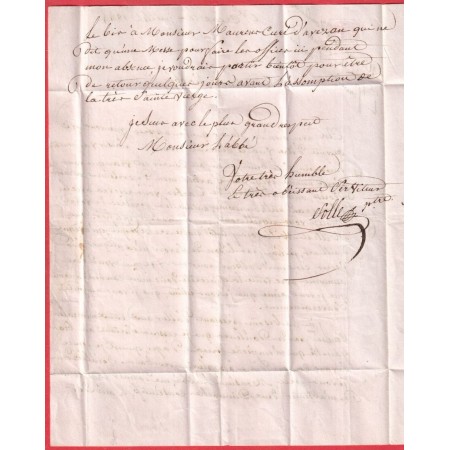 le bis à Monsieur Curé d'avezan qui ne
dit qu'une Messe pour faire les offices ici pendant
mon absence, je voudrais partir bientôt pour être
de retour quelques jours avant L'assomption de
la très Sainte Vierge.
je suis avec le plus grand respect
Monsieur L'abbé
Votre très humble
& très obeissant Serviteur
ptre